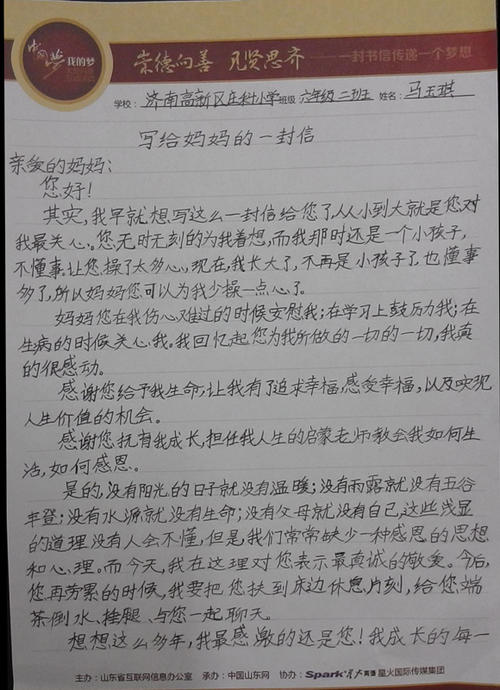 中国梦 我的梦
崇德向善 见贤思齐 ——一封书信传递一个梦想
学校：济南高新区庄科小学 班级 六年级二班 姓名：马玉琪
写给妈妈的一封信
亲爱的妈妈：
您好！
其实，我早就想写这么一封信给您了，从小到大就是您对
我最关心。您无时无刻的为我着想，而我那时还是一个小孩子，
不懂事让您操了太多心。现在，我长大了，不再是小孩子了，也懂事
多了，所以妈妈您可以为我少操一点心了。
妈妈您在我伤心难过的时候安慰我；在学习上鼓励我；在
生病的时候关心我。我回忆起您为我所做的一切的一切，我真
的很感动。
感谢您给予我生命，让我有了追求幸福，感受幸福，以及实现
人生价值的机会。
感谢您抚育我成长，担任我人生的启蒙老师，教会我如何生
活，如何感恩。
是的，没有阳光的日子就没有温暖；没有雨露就没有五谷
丰登；没有水源就没有生命；没有父母就没有自己，这些浅显
的道理没有人会不懂，但是我们常常缺少一种感恩的思想
和心理。而今天，我在这理对您表示最真诚的敬爱。今后，
您再劳累的时候，我要把您扶到床边休息片刻，给您端
茶倒水、捶腿、与您一起聊天。
想想这么多年，我最感激的还是您！我成长的每一
主办：山东省互联网信息办公室 承办：中国山东网 协办：Spark 星火英语 星火国际传媒集团